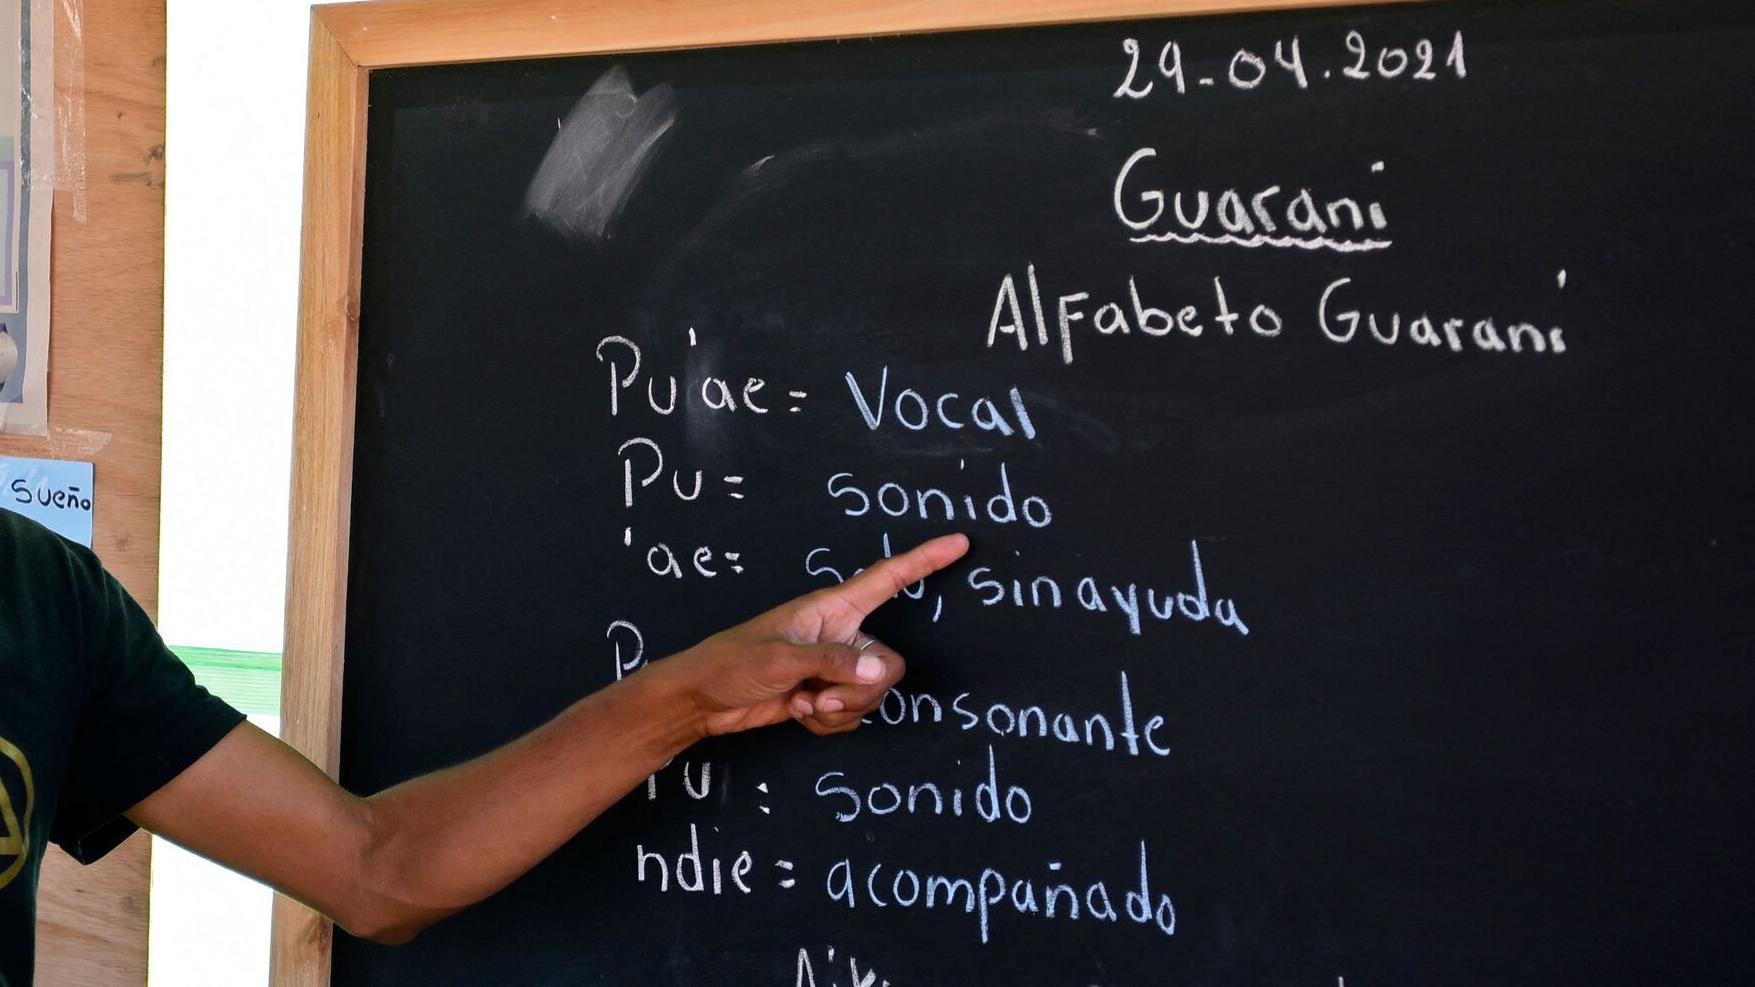 29-04.2021
Guaraní
Alfabeto Guaraní
Pu'ae = Vocal
Pu = sonido
'ae = solo, sin ayuda
consonante
Pu : sonido
ndie = acompañado
sueño